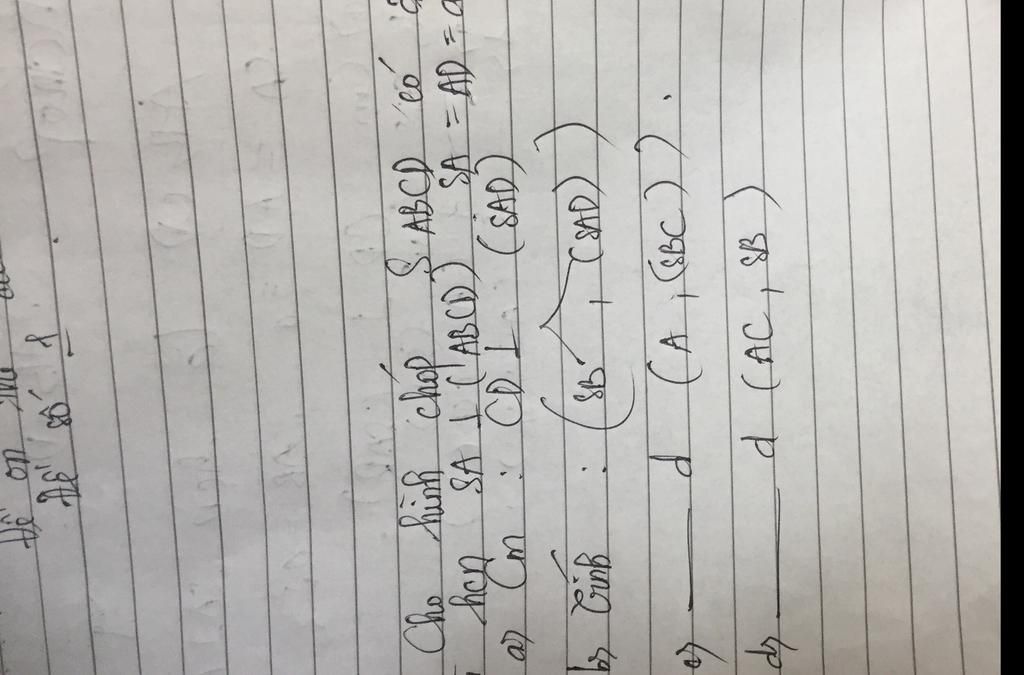 Đề ôn
Đề số 1
Cho hình chóp S.ABCD có
hcn SA ⊥ (ABCD) SA = AD = a
a) Cm : CD ⊥ (SAD)
b) Tính : (SB, (SAD))
c) ——— d (A, (SBC)).
d) ——— d (AC, SB)